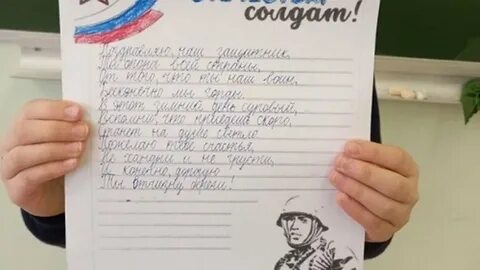 солдат!
Поздравляю, наш защитник,
Ты опора всей страны,
От того, что ты наш воин,
Бесконечно мы горды.
В этот зимний день суровый,
Вспомни, что придёшь скоро,
Станет на душе светло
Пожелаю тебе счастья,
Не хандри и не грусти,
И конечно, дорогую
Ты отчизну береги!